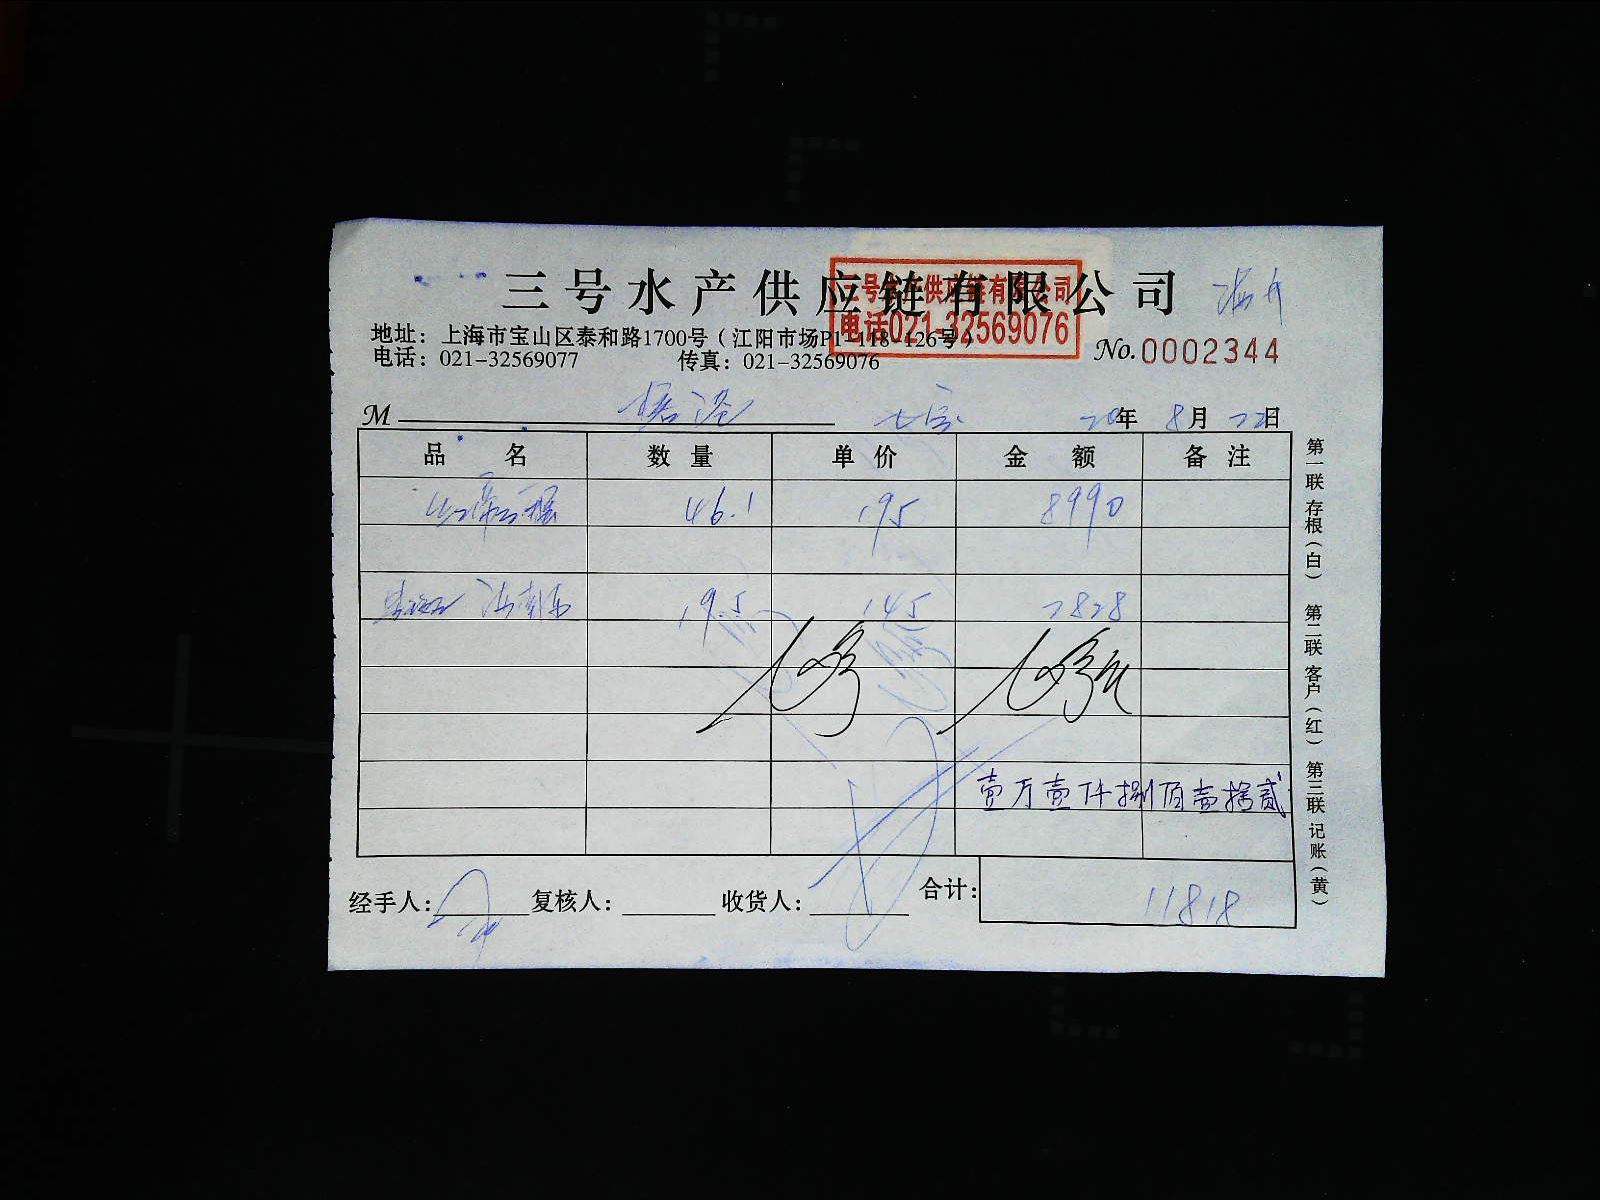 三号水产供应链有限公司
三号水产供应链有限公司
电话021-32569076
地址：上海市宝山区泰和路1700号（江阳市场P1-118-126号）
电话：021-32569077 传真：021-32569076
No.0002344
M
20年 8月 22日
品 名 数 量 单 价 金 额 备 注
46.1 195 8990
19.5 145 2828
壹万壹仟捌佰壹拾贰
经手人： 复核人： 收货人： 合计： 11818
第一联 存根（白） 第二联 客户（红） 第三联 记账（黄）